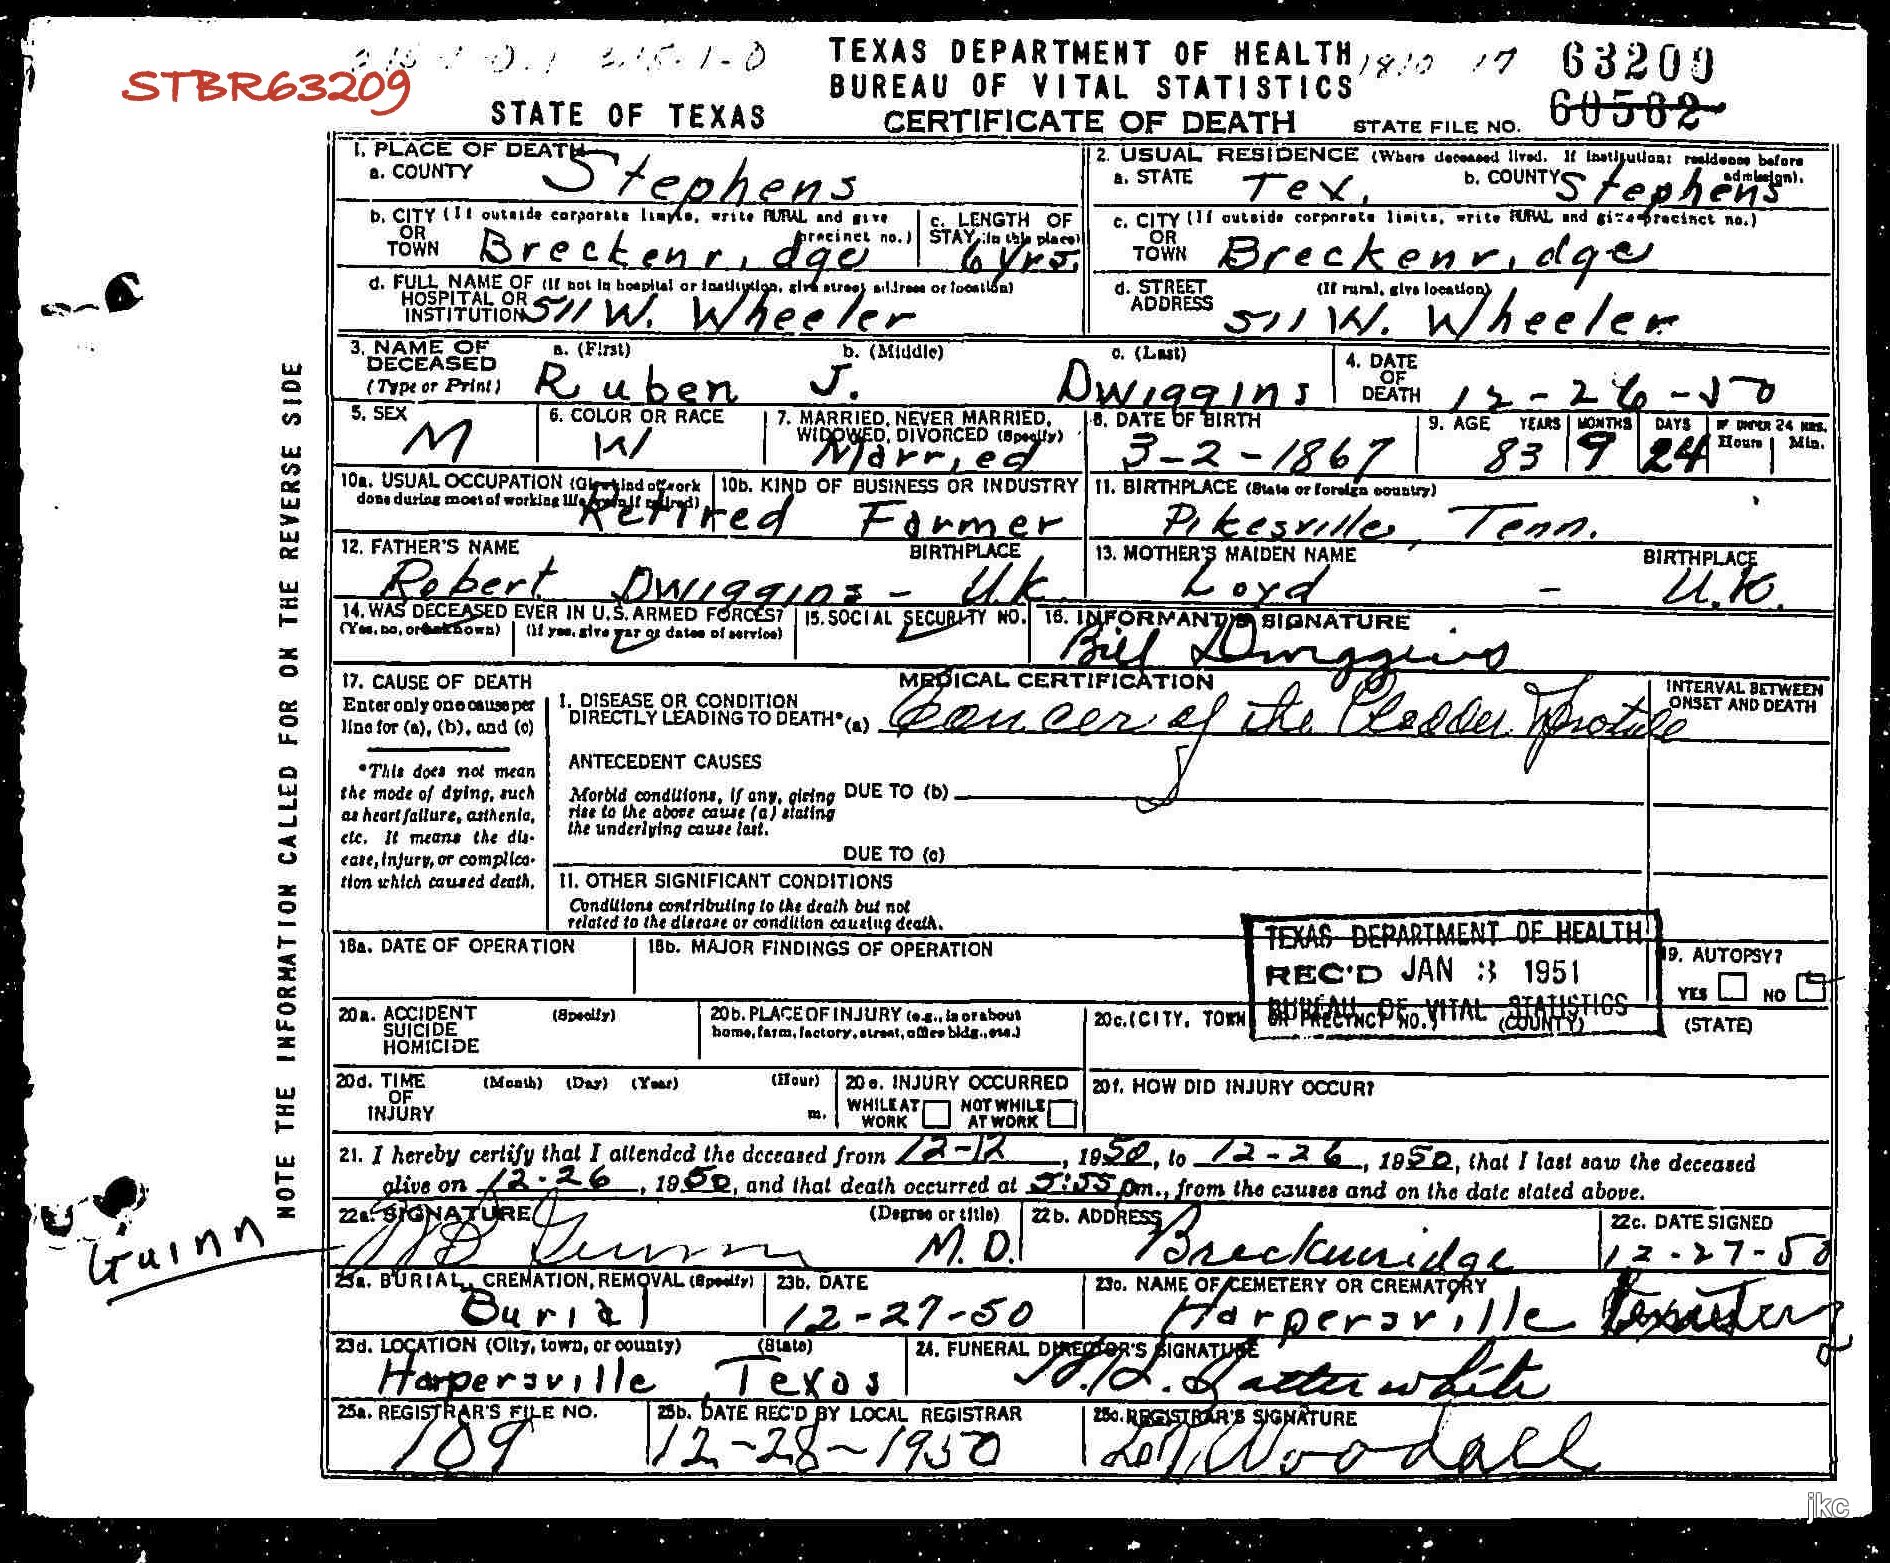 TEXAS DEPARTMENT OF HEALTH
BUREAU OF VITAL STATISTICS
1810 17
63209
STBR63209
STATE OF TEXAS
CERTIFICATE OF DEATH
STATE FILE NO. 60582
1. PLACE OF DEATH
a. COUNTY Stephens
2. USUAL RESIDENCE (Where deceased lived. If institution: residence before admission).
a. STATE Tex. b. COUNTY Stephens
b. CITY (If outside corporate limits, write RURAL and give precinct no.)
OR
TOWN Breckenridge
c. LENGTH OF STAY (in this place) 6 Yrs.
c. CITY (If outside corporate limits, write RURAL and give precinct no.)
OR
TOWN Breckenridge
d. FULL NAME OF (If not in hospital or institution, give street address or location)
HOSPITAL OR
INSTITUTION 511 W. Wheeler
d. STREET ADDRESS (If rural, give location)
511 W. Wheeler
3. NAME OF DECEASED (Type or Print)
a. (First) b. (Middle) c. (Last)
Ruben J. Dwiggins
4. DATE OF DEATH 12-26-50
5. SEX M
6. COLOR OR RACE W
7. MARRIED, NEVER MARRIED, WIDOWED, DIVORCED (Specify) Married
8. DATE OF BIRTH 3-2-1867
9. AGE YEARS 83 MONTHS 9 DAYS 24 IF UNDER 24 HRS. Hours Min.
10a. USUAL OCCUPATION (Give kind of work done during most of working life, even if retired)
10b. KIND OF BUSINESS OR INDUSTRY
Retired Farmer
11. BIRTHPLACE (State or foreign country)
Pikesville, Tenn.
12. FATHER'S NAME BIRTHPLACE
Robert Dwiggins - U.K.
13. MOTHER'S MAIDEN NAME BIRTHPLACE
Loyd - U.K.
14. WAS DECEASED EVER IN U.S. ARMED FORCES?
(Yes, no, or unknown) (If yes, give war or dates of service)
15. SOCIAL SECURITY NO.
16. INFORMANT'S SIGNATURE
Bill Dwiggins
17. CAUSE OF DEATH
Enter only one cause per line for (a), (b), and (c)
*This does not mean the mode of dying, such as heart failure, asthenia, etc. It means the disease, injury, or complication which caused death.
MEDICAL CERTIFICATION
I. DISEASE OR CONDITION
DIRECTLY LEADING TO DEATH* (a) Cancer of the Bladder &
INTERVAL BETWEEN ONSET AND DEATH
ANTECEDENT CAUSES
Morbid conditions, if any, giving rise to the above cause (a) stating the underlying cause last.
DUE TO (b)
DUE TO (c)
II. OTHER SIGNIFICANT CONDITIONS
Conditions contributing to the death but not related to the disease or condition causing death.
18a. DATE OF OPERATION
18b. MAJOR FINDINGS OF OPERATION
TEXAS DEPARTMENT OF HEALTH
REC'D JAN 3 1951
BUREAU OF VITAL STATISTICS
19. AUTOPSY?
YES NO
20a. ACCIDENT (Specify)
SUICIDE
HOMICIDE
20b. PLACE OF INJURY (e.g., in or about home, farm, factory, street, office bldg., etc.)
20c. (CITY, TOWN OR PRECINCT NO.) (COUNTY) (STATE)
20d. TIME OF INJURY (Month) (Day) (Year) (Hour) m.
20e. INJURY OCCURRED
WHILE AT WORK NOT WHILE AT WORK
20f. HOW DID INJURY OCCUR?
21. I hereby certify that I attended the deceased from 12-12, 1950, to 12-26, 1950, that I last saw the deceased
alive on 12-26, 1950, and that death occurred at 5:55 pm., from the causes and on the date stated above.
22a. SIGNATURE (Degree or title)
Guinn M.D.
Guinn
22b. ADDRESS
Breckenridge
22c. DATE SIGNED
12-27-50
23a. BURIAL, CREMATION, REMOVAL (Specify)
Burial
23b. DATE
12-27-50
23c. NAME OF CEMETERY OR CREMATORY
Harpersville Cemetery
23d. LOCATION (City, town, or county) (State)
Harpersville, Texas
24. FUNERAL DIRECTOR'S SIGNATURE
Satterwhite
25a. REGISTRAR'S FILE NO.
109
25b. DATE REC'D BY LOCAL REGISTRAR
12-28-1950
25c. REGISTRAR'S SIGNATURE
Woodall
NOTE THE INFORMATION CALLED FOR ON THE REVERSE SIDE
jkc